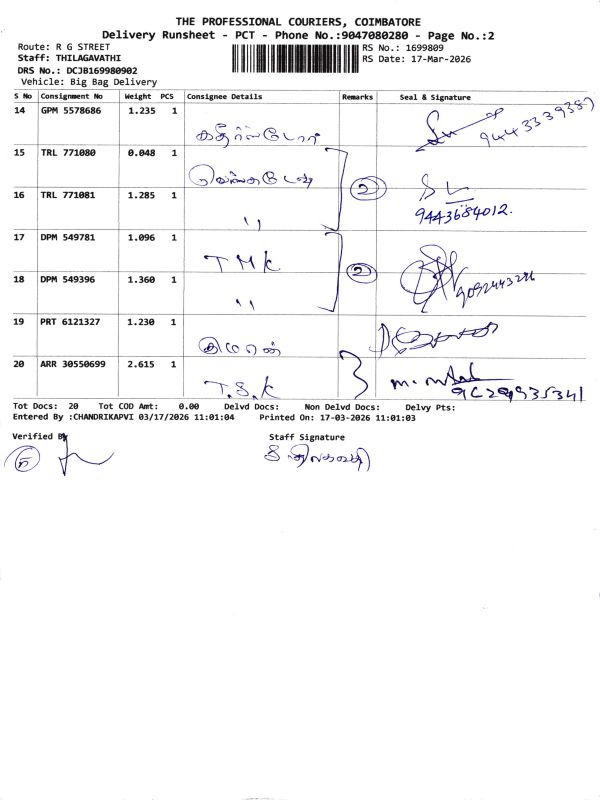 THE PROFESSIONAL COURIERS, COIMBATORE
Delivery Runsheet - PCT - Phone No.:9047080280 - Page No.:2
Route: R G STREET
RS No.: 1699809
Staff: THILAGAVATHI
RS Date: 17-Mar-2026
DRS No.: DCJB169980902
Vehicle: Big Bag Delivery
S No Consignment No Weight PCS Consignee Details Remarks Seal & Signature
14 GPM 5578686 1.235 1
15 TRL 771080 0.048 1
2
16 TRL 771081 1.285 1 "
9443684012.
17 DPM 549781 1.096 1 T M K
2
18 DPM 549396 1.360 1 "
19 PRT 6121327 1.230 1 குமரன்
20 ARR 30550699 2.615 1 T.S.K
Tot Docs: 20 Tot COD Amt: 0.00 Delvd Docs: Non Delvd Docs: Delvy Pts:
Entered By :CHANDRIKAPVI 03/17/2026 11:01:04 Printed On: 17-03-2026 11:01:03
Verified By
Staff Signature